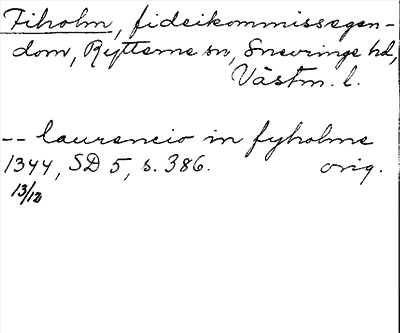 Fiholm, fideikommissegen-
dom, Rytterne sn, Snevringe hd,
Västm. l.
-- laurencio in fyholme
1344, SD 5, s. 386. orig.
13/12